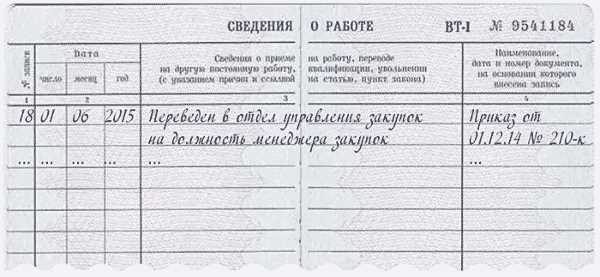 СВЕДЕНИЯ О РАБОТЕ ВТ-I № 9541184
№ записи
Дата
число месяц год
Сведения о приеме на работу, переводе
на другую постоянную работу, квалификации, увольнении
(с указанием причин и ссылкой на статью, пункт закона)
Наименование,
дата и номер документа,
на основании которого
внесена запись
1 2 3 4
18 01 06 2015 Переведен в отдел управления закупок Приказ от
на должность менеджера закупок 01.12.14 № 210-к
... ... ... ... ... ...